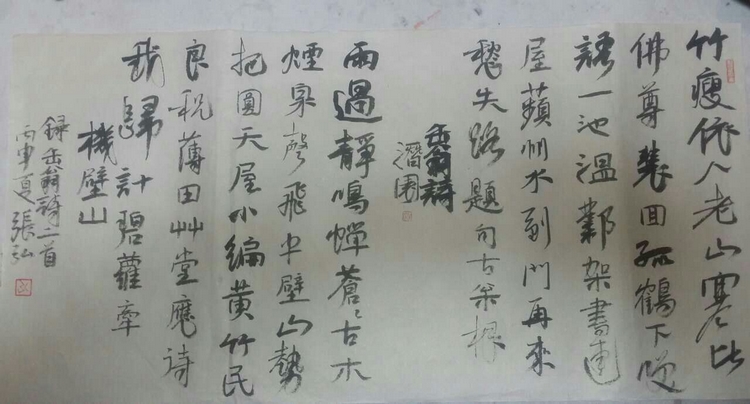 竹瘦依人老山寒比
佛尊裴回孤鶴下唼
語一池溫鄰架書連
屋蘋州水到門再來
愁失路題句古根
缶翁詩
潛園
雨過靜鳴蟬蒼〻古木
煙泉聲飛半壁山勢
抱圓天屋小編黃竹民
良税薄田艸堂應詩
我歸計碧蘿牽
機壁山
錄缶翁詩二首
丙申夏張弘